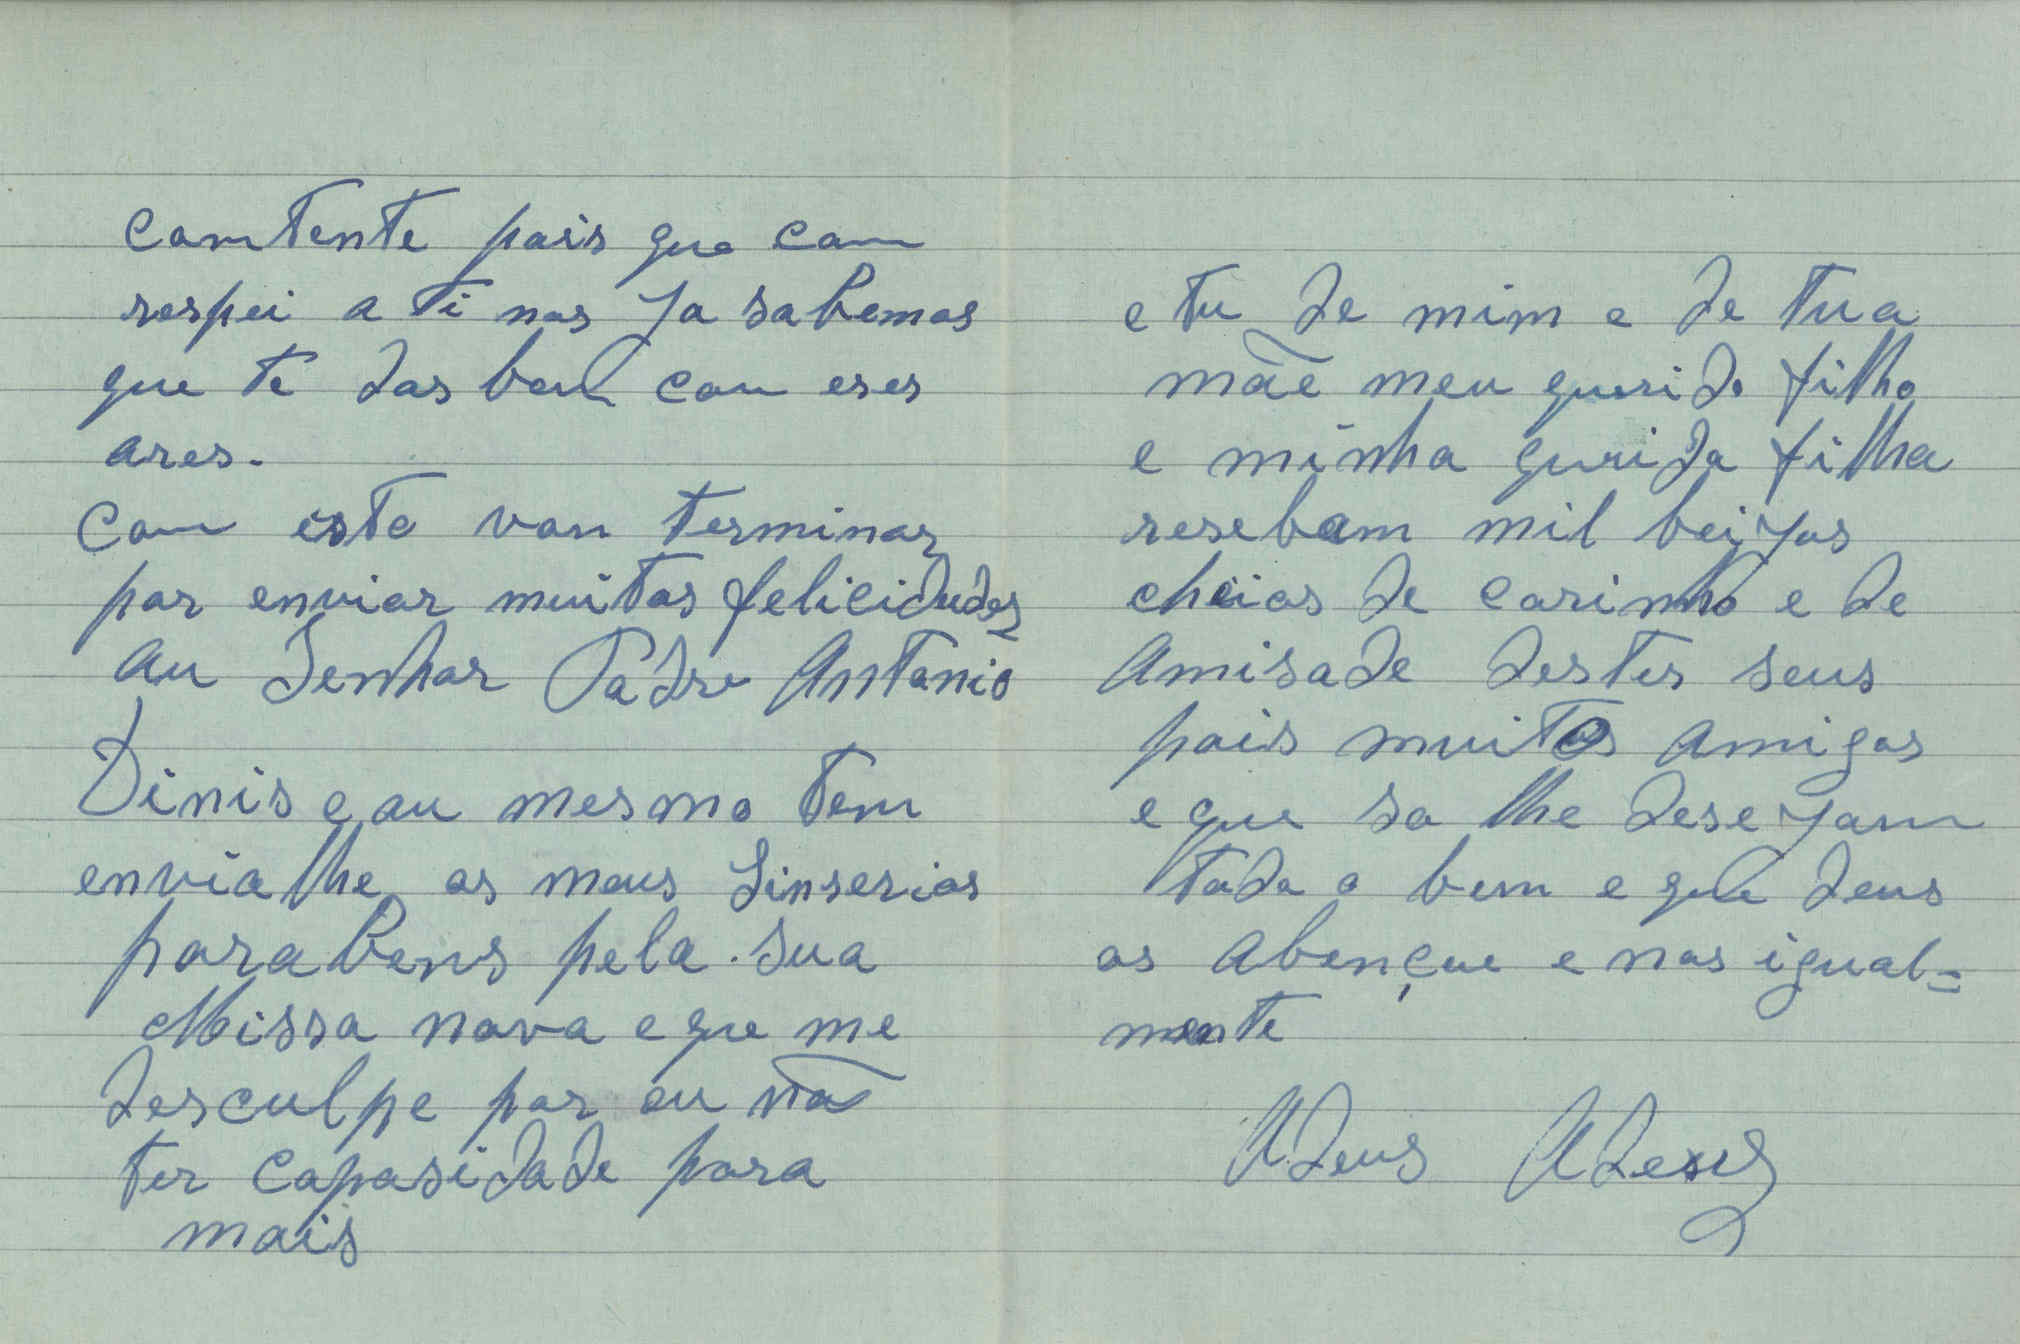 contente pois que com
respei a ti nos ja sabemos
que te das bem com eses
ares.
Com esta vou terminar
por enviar muitas felicidades
au Senhor Padre Antonio
Dinis e au mesmo tem
envia lhe os meus Sinserios
parabens pela sua
Missa nova e que me
desculpe por eu não
ter capasidade para
mais
e tu de mim e de tua
mãe meu querido filho
e minha qurida filha
resebam mil beijos
cheios de carinho e de
Amisade destes seus
pais muitos amigos
e que so lhe desejam
todo o bem e que deus
os abençue e nos igual=
mente
Adeus Adeus